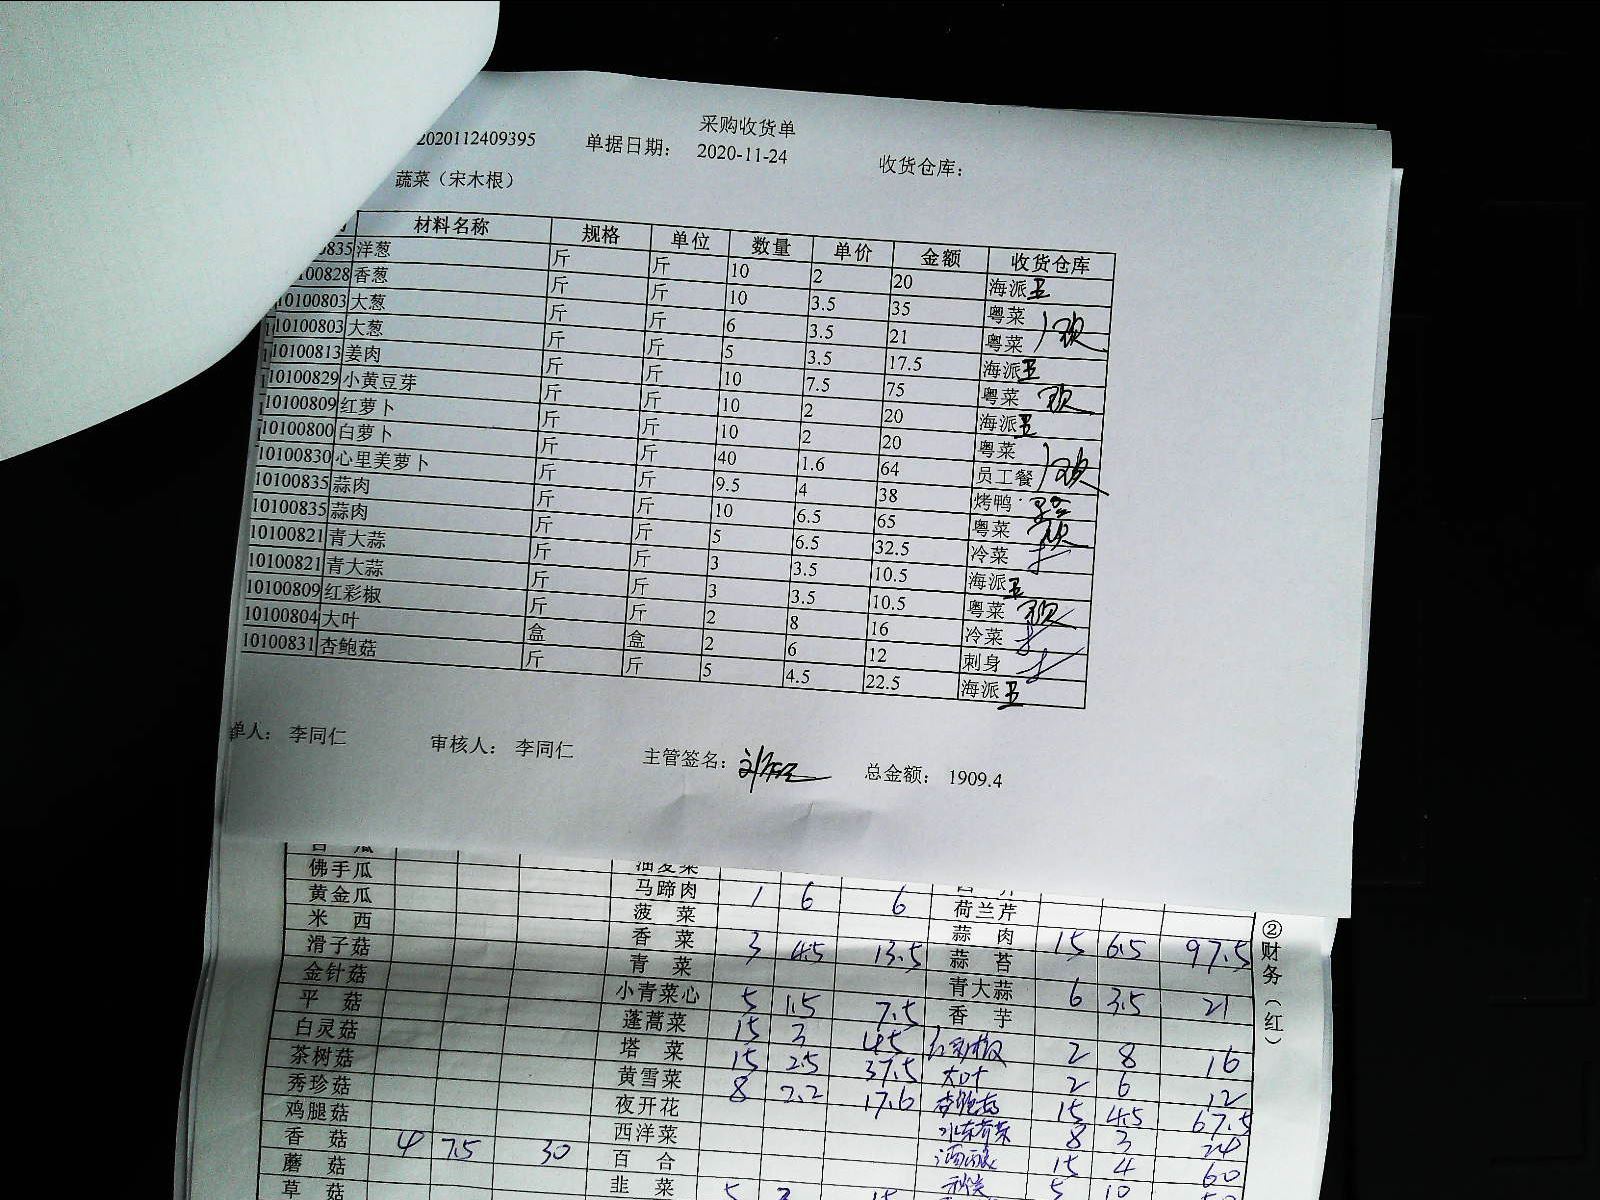 采购收货单
2020112409395 单据日期： 2020-11-24 收货仓库：
蔬菜（宋木根）
材料名称 规格 单位 数量 单价 金额 收货仓库
0835 洋葱 斤 斤 10 2 20 海派
100828 香葱 斤 斤 10 3.5 35 粤菜
10100803 大葱 斤 斤 6 3.5 21 粤菜
10100803 大葱 斤 斤 5 3.5 17.5 海派
10100813 姜肉 斤 斤 10 7.5 75 粤菜
10100829 小黄豆芽 斤 斤 10 2 20 海派
10100809 红萝卜 斤 斤 10 2 20 粤菜
10100800 白萝卜 斤 斤 40 1.6 64 员工餐
10100830 心里美萝卜 斤 斤 9.5 4 38 烤鸭
10100835 蒜肉 斤 斤 10 6.5 65 粤菜
10100835 蒜肉 斤 斤 5 6.5 32.5 冷菜
10100821 青大蒜 斤 斤 3 3.5 10.5 海派
10100821 青大蒜 斤 斤 3 3.5 10.5 粤菜
10100809 红彩椒 斤 斤 2 8 16 冷菜
10100804 大叶 盒 盒 2 6 12 刺身
10100831 杏鲍菇 斤 斤 5 4.5 22.5 海派
单人： 李同仁 审核人： 李同仁 主管签名： 总金额： 1909.4
油麦菜
佛手瓜 马蹄肉 1 6 6 荷兰芹
黄金瓜 菠菜 蒜肉 15 6.5 97.5
米西 香菜 3 4.5 13.5 蒜苔
滑子菇 青菜 青大蒜 6 3.5 21
金针菇 小青菜心 5 1.5 7.5 香芋
平菇 蓬蒿菜 15 3 45 红彩椒 2 8 16
白灵菇 塔菜 15 2.5 37.5 大叶 2 6 12
茶树菇 黄雪菜 8 2.2 17.6 杏鲍菇 15 4.5 67.5
秀珍菇 夜开花 8 3 24
鸡腿菇 西洋菜 15 4 60
香菇 4 7.5 30 百合 5 10 50
蘑菇 韭菜 5 3 15
草菇
②财务（红）